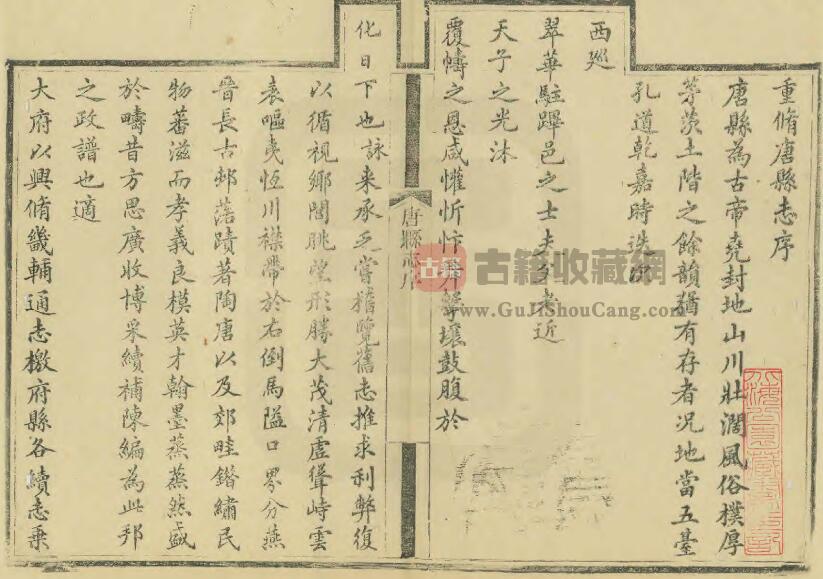 重脩唐縣志序
唐縣為古帝堯封地山川壯濶風俗樸厚
茅茨土階之餘韻猶有存者況地當五臺
孔道乾嘉時迭次
西廵
翠華駐蹕邑之士夫父老近
天子之光沐
覆幬之恩咸懽忻忭舞擊壤鼓腹於
唐縣志序
化日下也詠來承乏嘗稽覽舊志推求利弊復
以循視鄉閭眺望形勝大茂清虛聳峙雲
表嘔夷恆川襟帶於右倒馬隘口界分燕
晉長古邨落蹟著陶唐以及郊畦錯繡民
物蕃滋而孝義良模英才翰墨蒸蒸然盛
於疇昔方思廣收博采續補陳編為此邦
之政譜也適
大府以興脩畿輔通志檄府縣各續志乘
古籍
古籍收藏网
www.GuJiShouCang.com